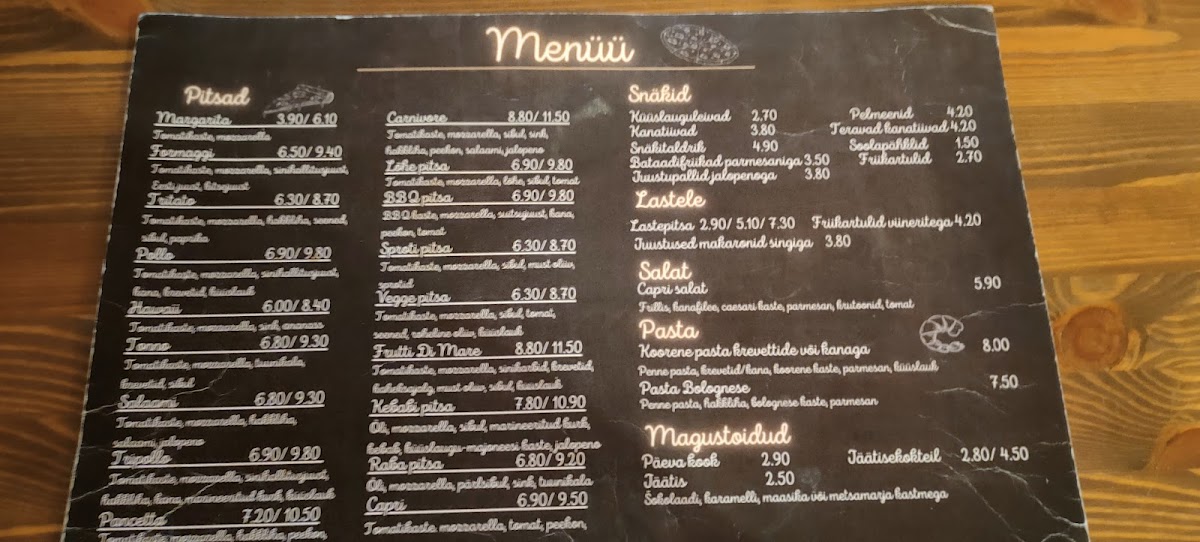 Menüü
Pitsad
Margarita 3.90/ 6.10
Tomatikaste, mozzarella
Formaggi 6.50/ 9.40
Tomatikaste, mozzarella, sinihallitusjuust,
Eesti juust, kitsejuust
Tritato 6.30/ 8.70
Tomatikaste, mozzarella, hakkliha, seened,
sibul, paprika
Pollo 6.90/ 9.80
Tomatikaste, mozzarella, sinihallitusjuust,
kana, krevetid, küüslauk
Hawaii 6.00/ 8.40
Tomatikaste, mozzarella, sink, ananass
Tonno 6.80/ 9.30
Tomatikaste, mozzarella, tuunikala,
krevetid, sibul
Salaami 6.80/ 9.30
Tomatikaste, mozzarella, hakkliha,
salaami, jalopeno
Tripollo 6.90/ 9.80
Tomatikaste, mozzarella, sinihallitusjuust,
hakkliha, kana, marineeritud kurk, küüslauk
Pancetta 7.20/ 10.50
Tomatikaste, mozzarella, hakkliha, peekon,
Carnivore 8.80/ 11.50
Tomatikaste, mozzarella, sibul, sink,
hakkliha, peekon, salaami, jalopeno
Lõhe pitsa 6.90/ 9.80
Tomatikaste, mozzarella, lõhe, sibul, tomat
BBQ pitsa 6.90/ 9.80
BBQ kaste, mozzarella, suitsujuust, kana,
peekon, tomat
Sproti pitsa 6.30/ 8.70
Tomatikaste, mozzarella, sibul, must oliiv,
sprotid
Vegge pitsa 6.30/ 8.70
Tomatikaste, mozzarella, sibul, tomat,
seened, roheline oliiv, küüslauk
Frutti Di Mare 8.80/ 11.50
Tomatikaste, mozzarella, sinikarbid, krevetid,
kaheksajalg, must oliiv, sibul, küüslauk
Kebabi pitsa 7.80/ 10.90
Õli, mozzarella, sibul, marineeritud kurk,
kebab, küüslaugu-majoneesi kaste, jalopeno
Raba pitsa 6.80/ 9.20
Õli, mozzarella, pärlsibul, sink, tuunikala
Capri 6.90/ 9.50
Tomatikaste, mozzarella, tomat, peekon,
Snäkid
Küüslauguleivad 2.70
Kanatiivad 3.80
Snäkitaldrik 4.90
Bataadifriikad parmesaniga 3.50
Juustupallid jalopenoga 3.80
Pelmeenid 4.20
Teravad kanatiivad 4.20
Soolapähklid 1.50
Friikartulid 2.70
Lastele
Lastepitsa 2.90/ 5.10/ 7.30 Friikartulid viineritega 4.20
Juustused makaronid singiga 3.80
Salat
Capri salat 5.90
Frillis, kanafilee, caesari kaste, parmesan, krutoonid, tomat
Pasta
Koorene pasta krevettide või kanaga 8.00
Penne pasta, krevetid/kana, koorene kaste, parmesan, küüslauk
Pasta Bolognese 7.50
Penne pasta, hakkliha, bolognese kaste, parmesan
Magustoidud
Päeva kook 2.90 Jäätisekokteil 2.80/ 4.50
Jäätis 2.50
Šokolaadi, karamelli, maasika või metsamarja kastmega